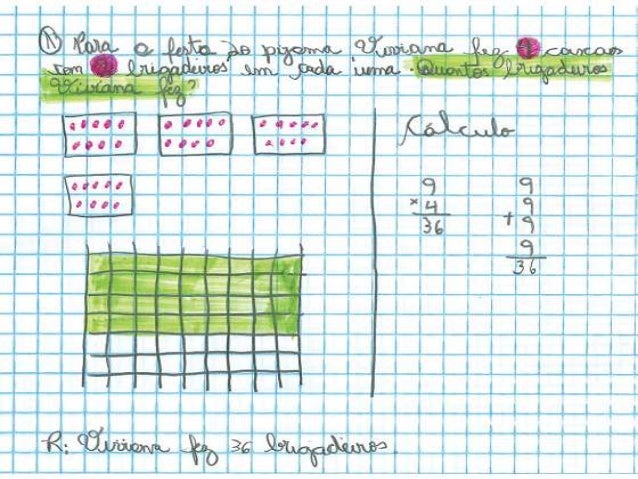 1) Para a festa do pijama Viviana fez 4 caixas
com 9 brigadeiros em cada uma. Quantos brigadeiros
Viviana fez?
Cálculo
9
× 4
36
9
9
+ 9
9
36
R: Viviana fez 36 brigadeiros.